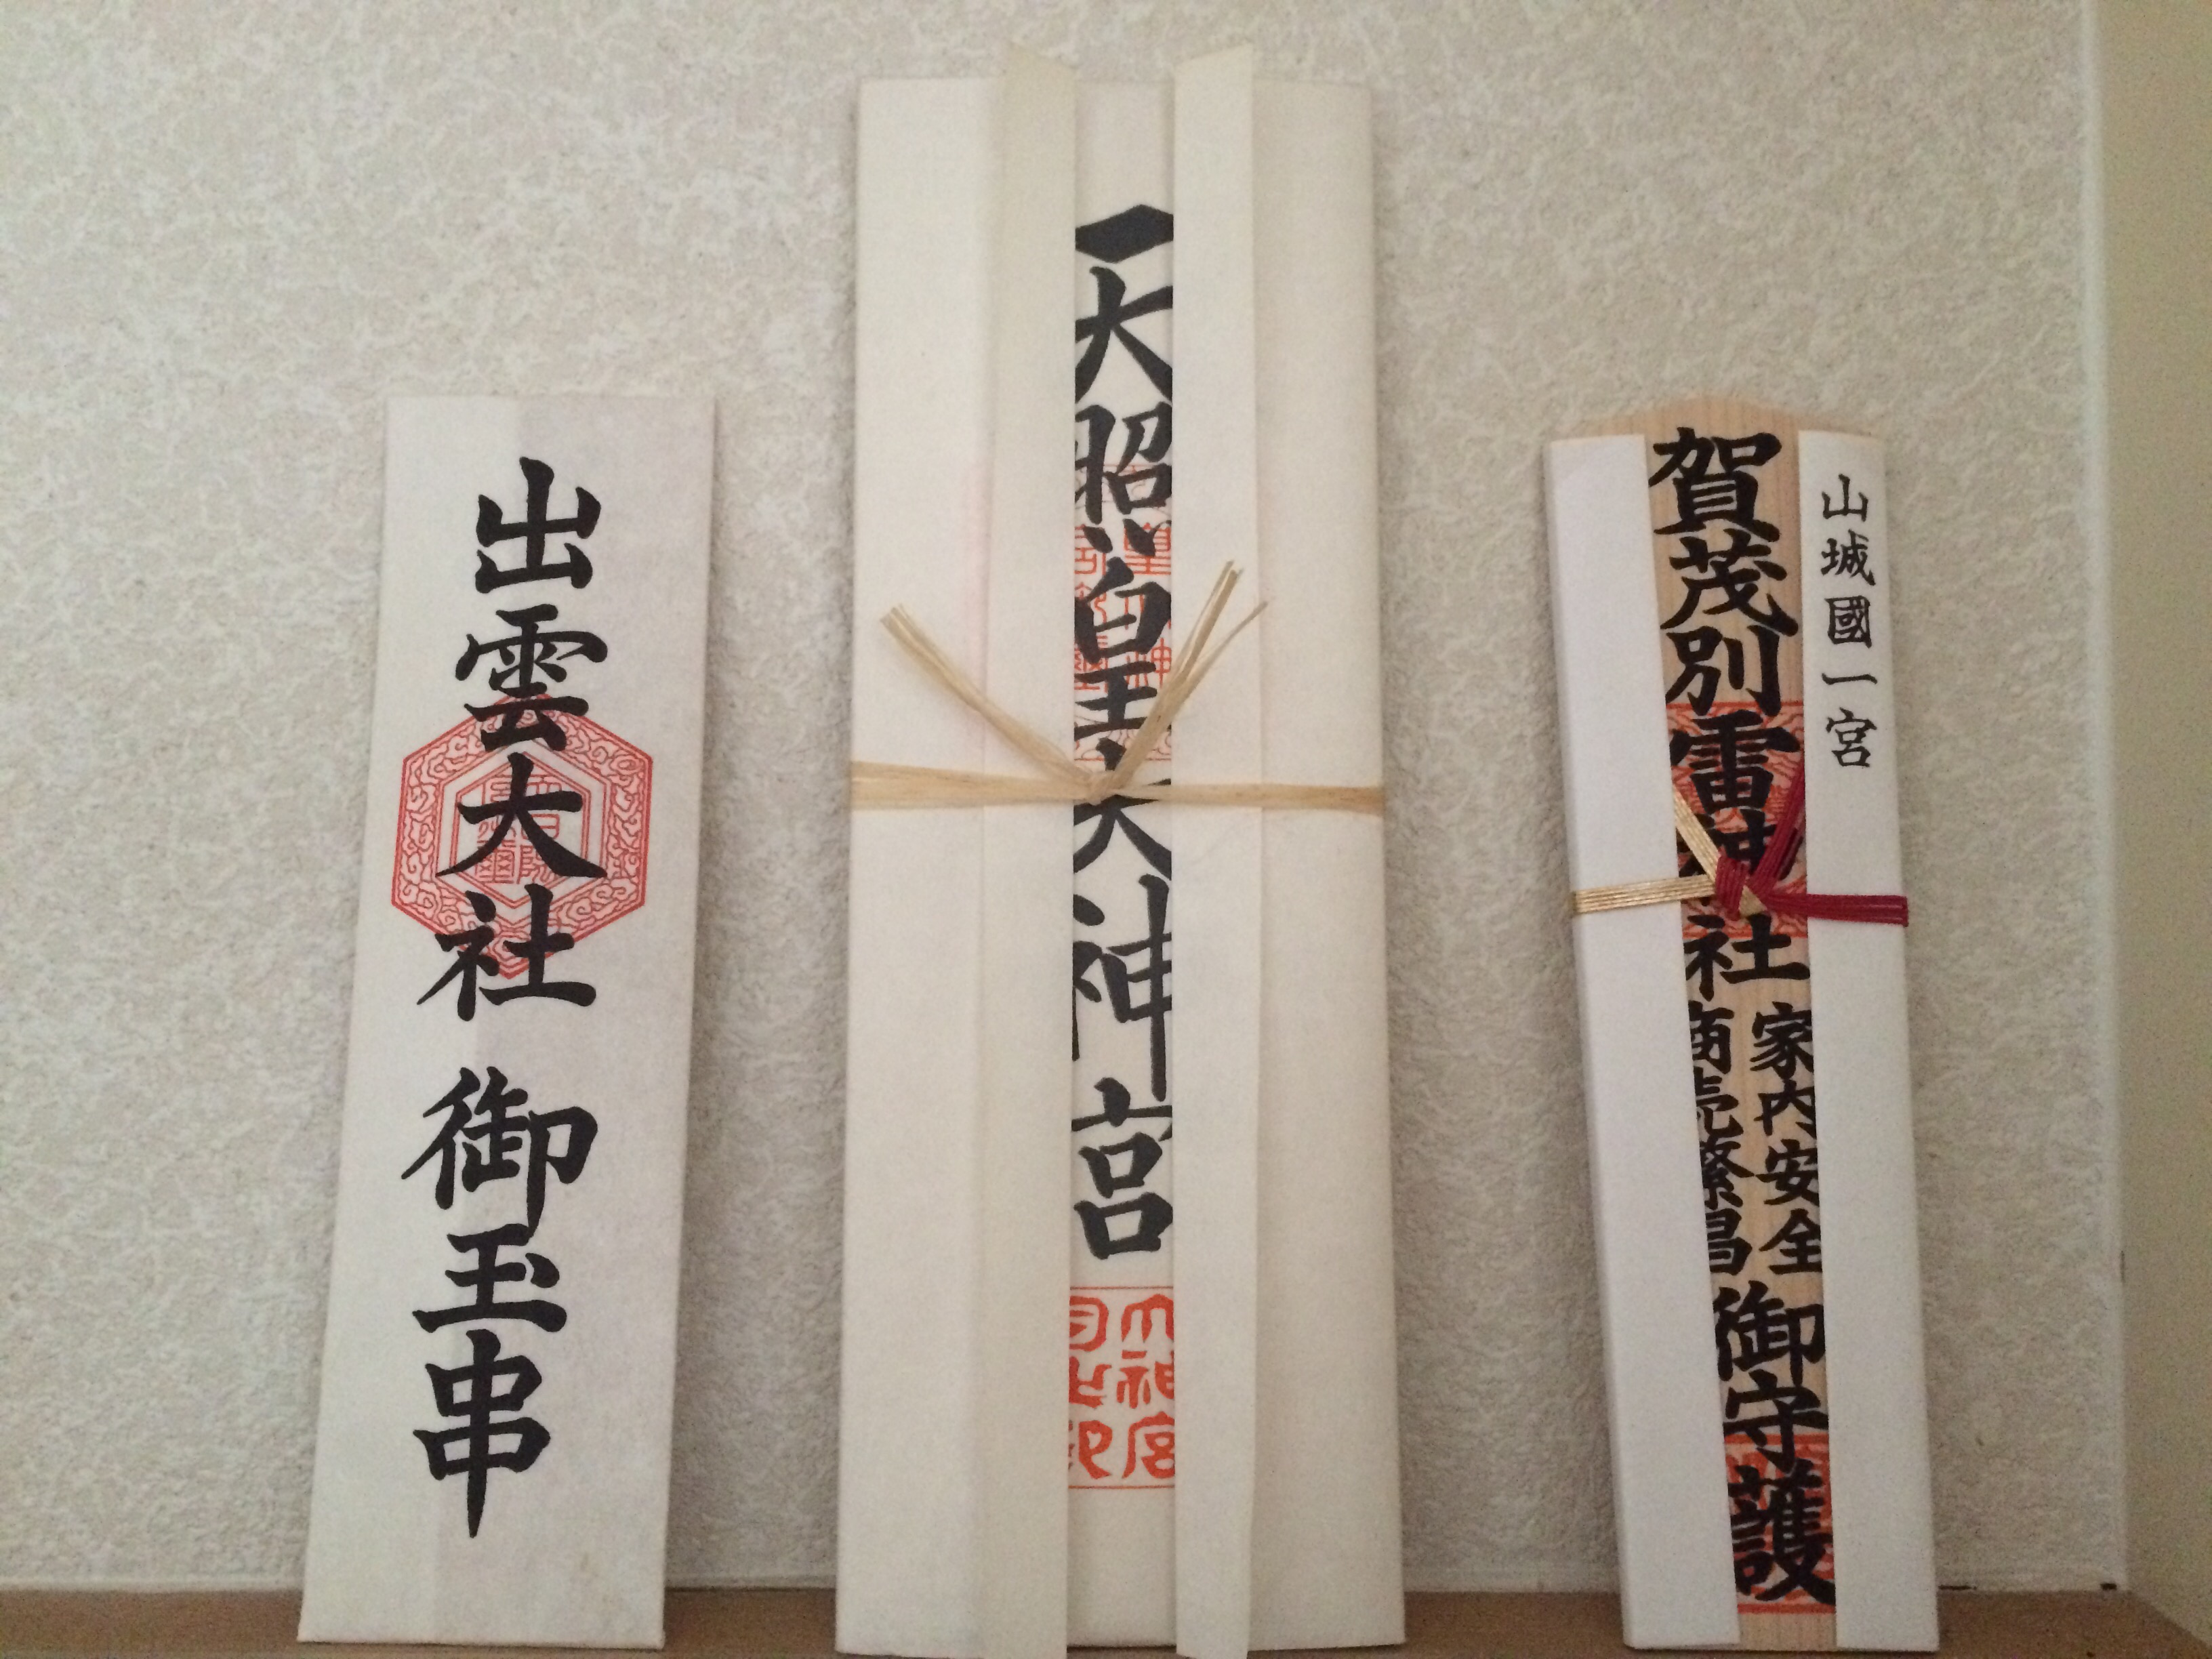 出雲大社 御玉串
天照皇大神宮
大神宮
山城國一宮
賀茂別雷神社
家内安全
商売繁昌
御守護